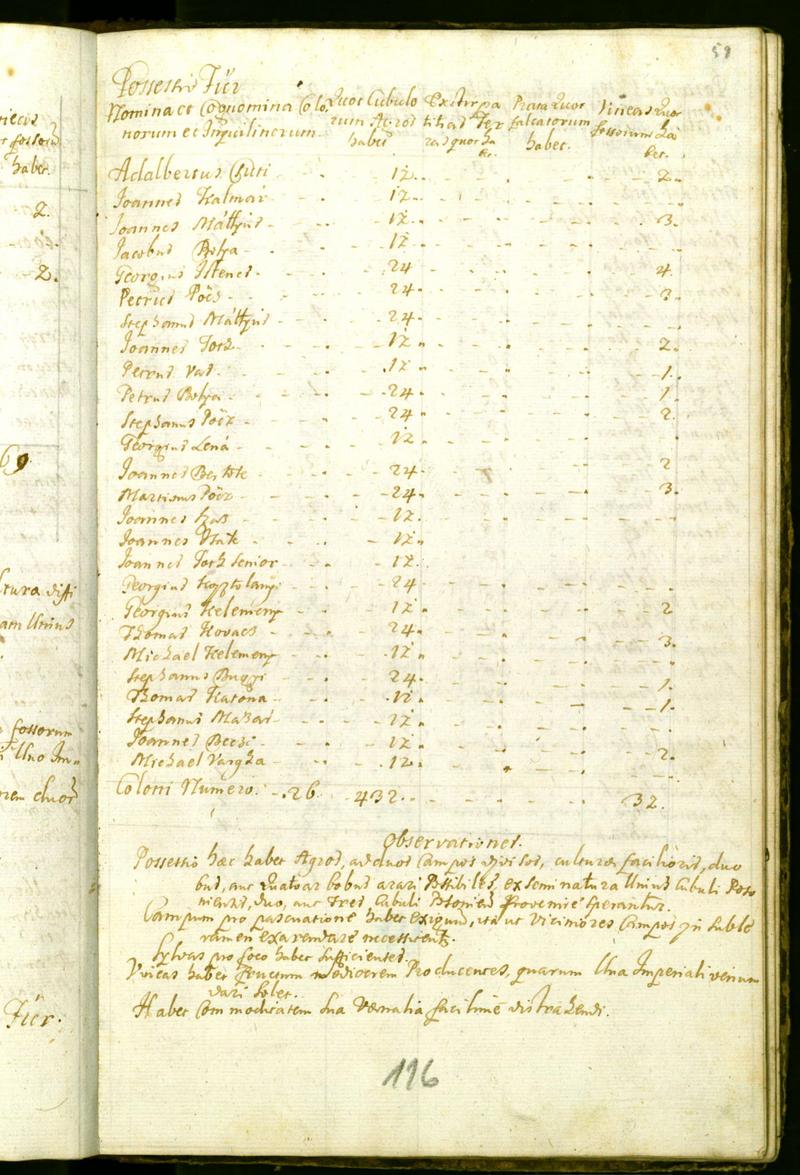 59
Possessio Für
Nomina et Cognomina Colo
norum et Inquilinorum
Quot Cubulo
rum Agros
habet
Extirpa
titias Ter
ras quot ha
bet.
Prata Quot
falcatorum
habet.
Vineas Quot
fossorum ha
bet.
Adalbertus - - 12. - - 2.
Joannes Kalmár - - 12. - -
Joannes Máttyus - - 12. - - 3.
Jacobus Botja - - 12 - -
Georgius Istenes - - 24 - - 4.
Petrus Poös - - 24. - - 3.
Stephanus Máttyus - - 24. - -
Joannes Toth - - 12. - - 2.
Petrus Vas - - 12. - - 1.
Petrus Botja - - 24. - - 1.
Stephanus - - 24. - - 2.
Georgius Lená - - 12 - -
Joannes Bertók - - 24. - - 2
Martinus - - 24. - - 3.
Joannes - - 12. - -
Joannes - - 12. - -
Joannes Toth Senior - - 12. - -
Georgius - - 24 - -
Georgius Kelemeny - - 12. - - 2
Thomas Kovacs - - 24. - - 3.
Michael Kelemeny - - 12. - -
Stephanus - - 24. - - 1.
Thomas Katona - - 12. - - 1.
Stephanus - - 12. - -
Joannes - - 12. - - 2.
Michael Vargha - - 12. - -
Coloni Numero. - 26. 432. - - 32.
Observationes.
Possessio haec habet Agros, ad duos Campos divisos, culturae facilioris, duo
bus, aut Quatuor bobus arari possibiles, ex seminatura Unius Cubuli Poso
niensis, duo, aut tres, Cubuli Posonien provenire sperantur.
Campum pro pascuatione habet exiguum, ita ut Viciniores Campos in suble
vamen exarendare necessitent.
Sylvas pro foco habet sufficientes.
Vineas habet fructum mediocrem Producentes, quarum Una Imperiali venum
dari solet.
Habet Commoditatem sua Venalia facilime distrahendi.
196
2.
2.
69
Unius
fossorum
Uno
Für.